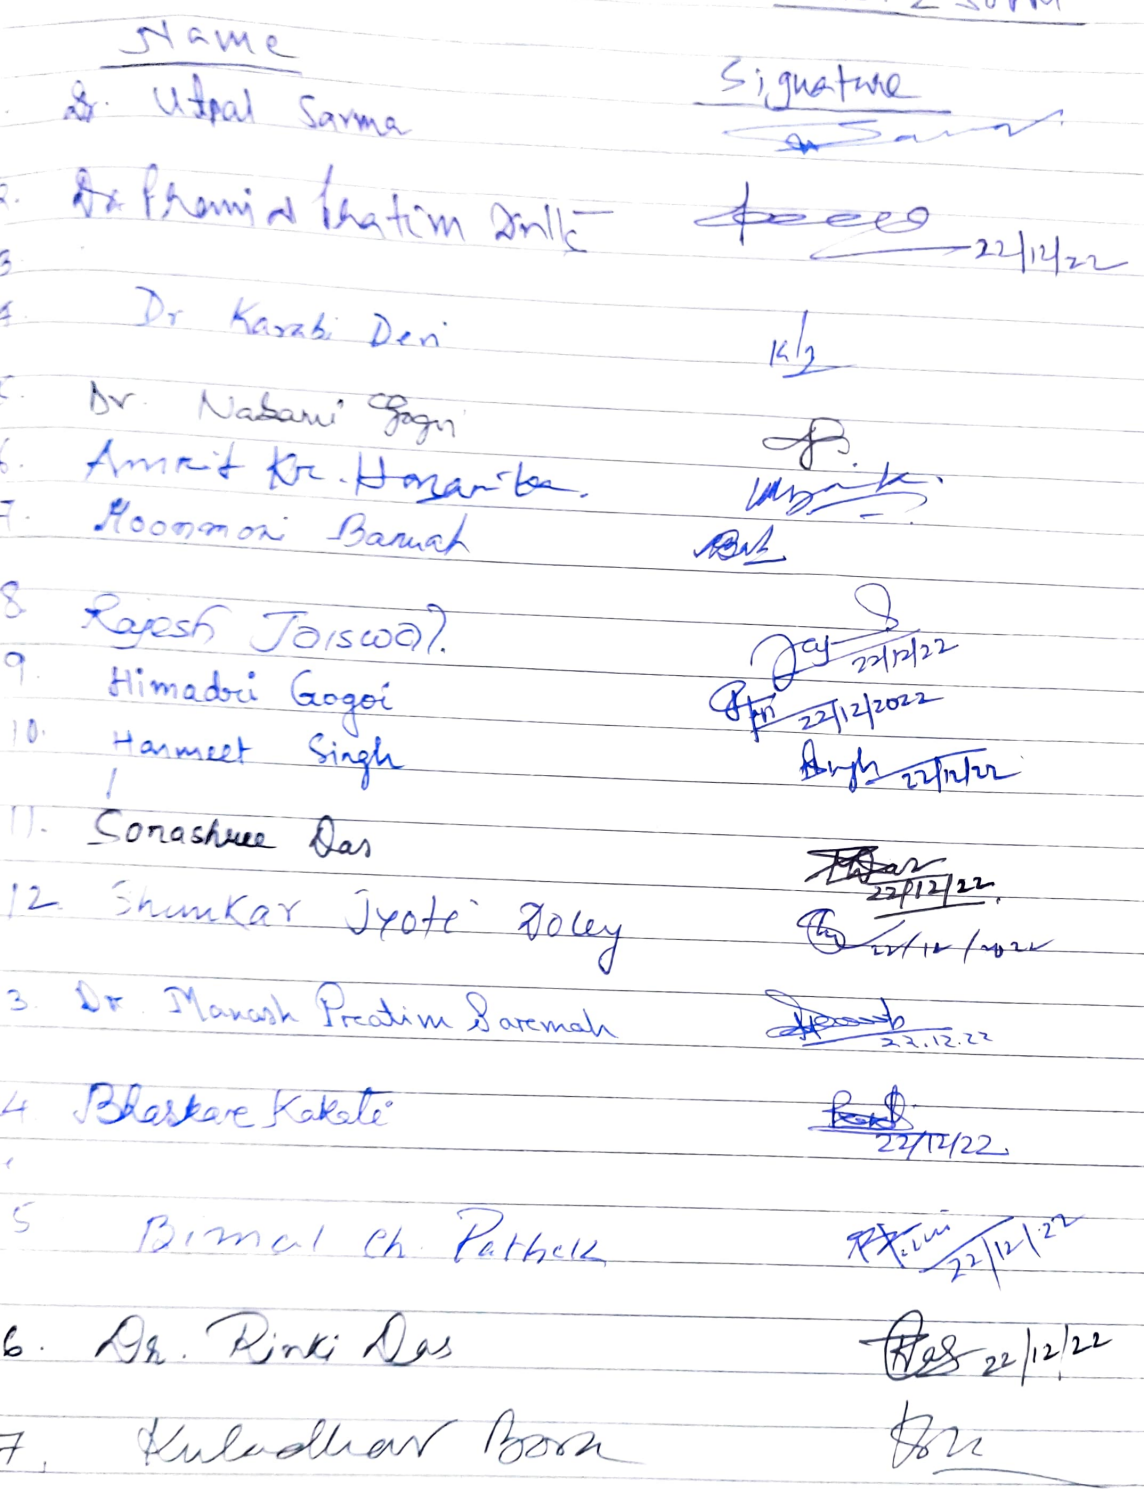 Name
Signature
Dr. Utpal Sarma
2. Dr
22/12/22
3
4. Dr Karabi Devi
Dr. Nabani Gogoi
6. Amrit Kr. Hazarika.
7. Moonmoni Baruah
8 Rajesh Jaiswal.
22/12/22
9. Himadri Gogoi
22/12/2022
10. Harmeet Singh
22/12/22
11. Sonashree Das
22/12/22.
12. Shunkar Jyoti Doley
22/12/2022
3. Dr. Manash Pratim Sarmah
22.12.22
4 Bhaskar Kakati
22/12/22.
5 Bimal Ch. Pathak
22/12/22
6. Dr. Rinki Das
22/12/22
7. Kuladhar Bora